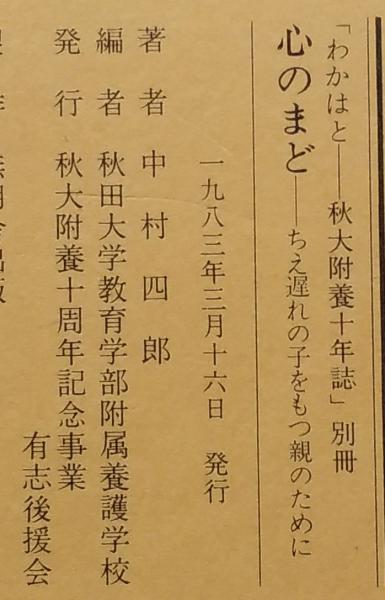 「わかはと――秋大附養十年誌」別冊
心のまど――ちえ遅れの子をもつ親のために
一九八三年三月十六日　発行
著者　中村四郎
編者　秋田大学教育学部附属養護学校
発行　秋大附養十周年記念事業
有志後援会